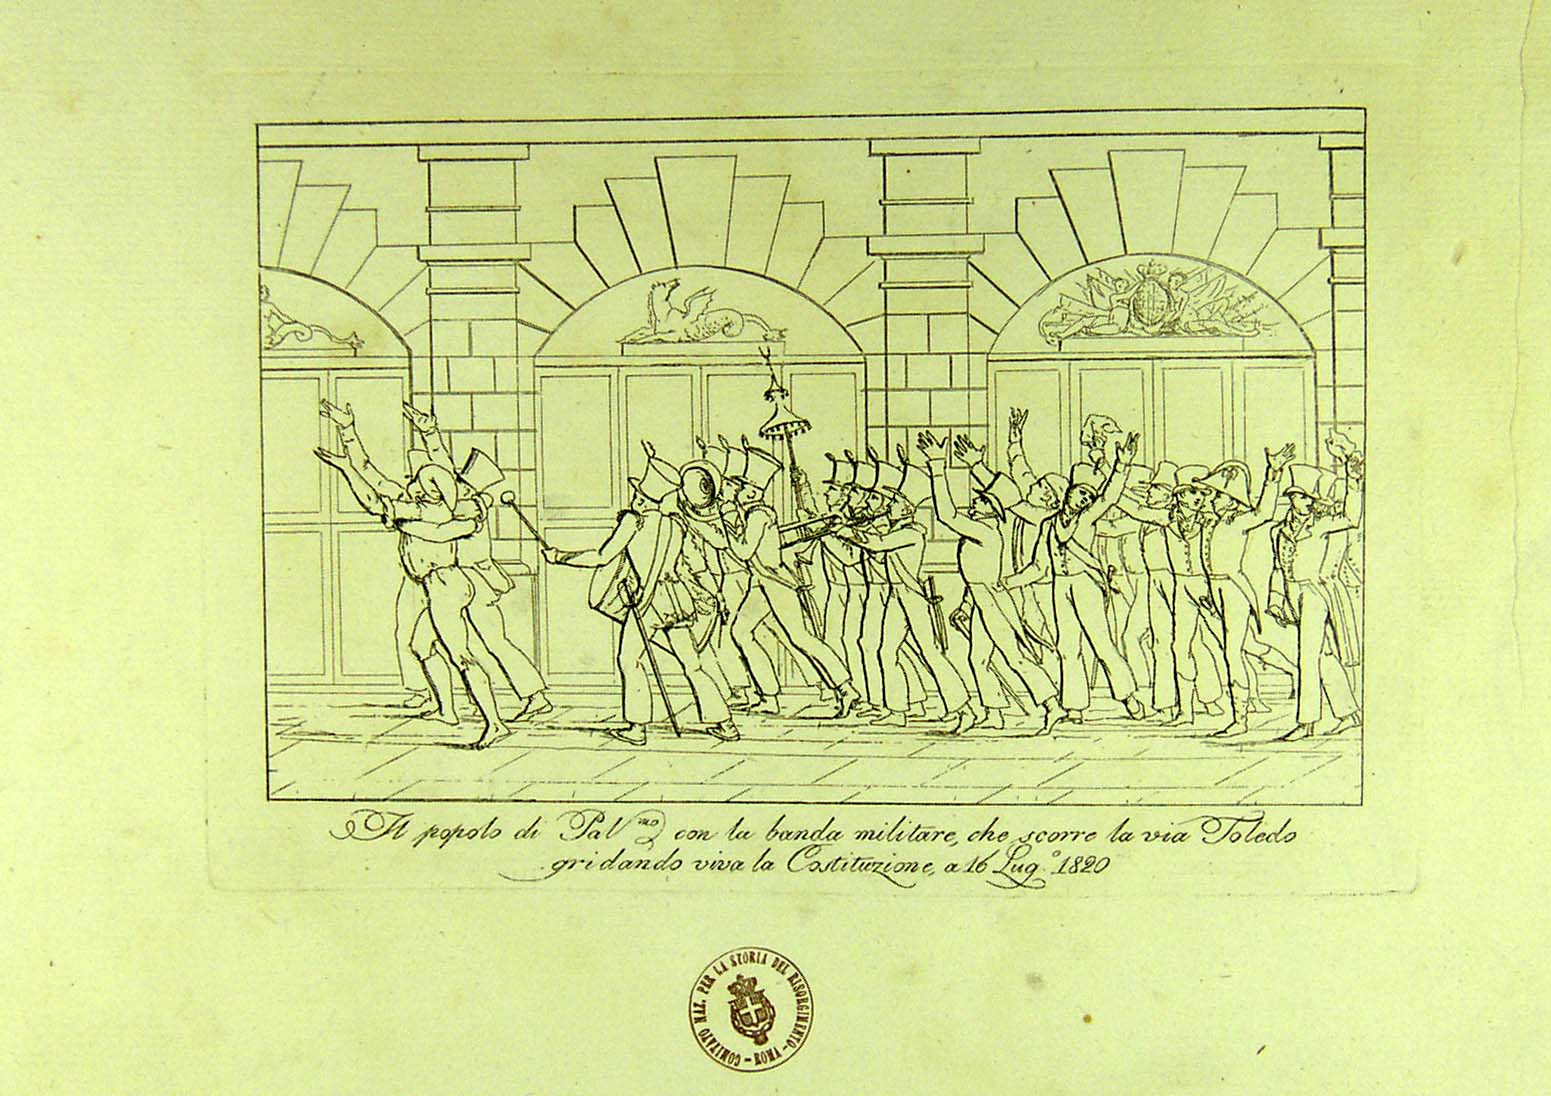 Il popolo di Pal^mo con la banda militare, che scorre la via Toledo
gridando viva la Costituzione, a 16 Lug.° 1820
COMITATO NAZ. PER LA STORIA DEL RISORGIMENTO - ROMA -